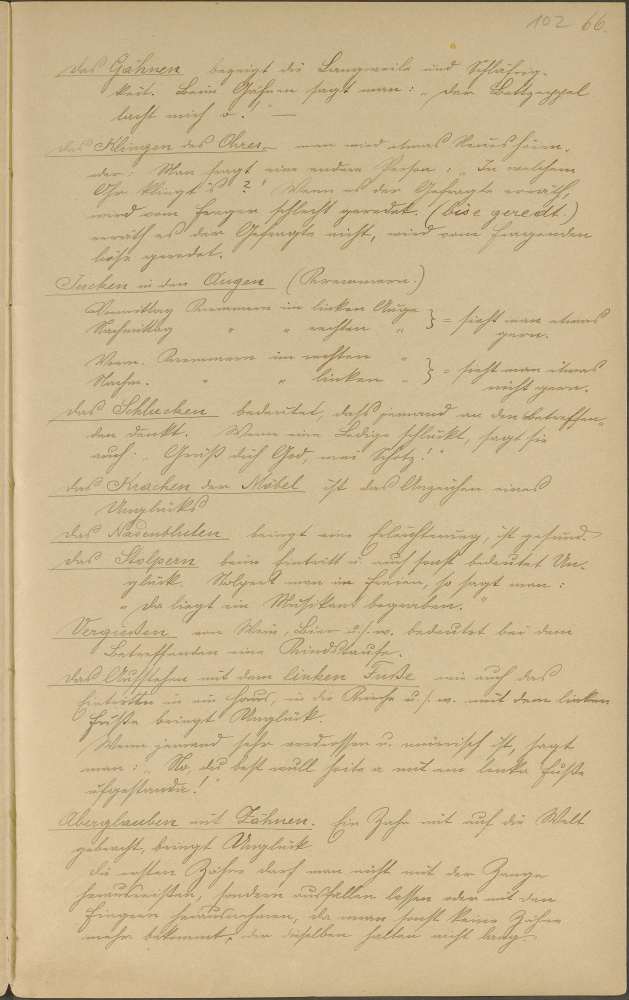 102 66.
das Gähnen bezeigt die Langweile und Schläfrig-
keit. Beim Gähnen sagt man: „Der Bettzeppel
lacht mich o!" —
das Klingen des Ohres, man wird etwas Neues hören.
oder: Man fragt eine andere Person: „In welchem
Ohr klingt's?" Wenn es der Gefragte errath,
wird vom Frager schlecht geredet. (bise geredt.)
errath es der Gefragte nicht, wird vom Fragenden
böse geredet.
Jucken in den Augen (Kremmern.)
Vormittag Kremmern im linken Auge } = sieht man etwas
Nachmittag " " rechten " gern.
Vorm. Kremmern im rechten " } = sieht man etwas
Nachm. " " linken " nicht gern.
das Schlucken bedeutet, daß jemand an den Betreffen-
den denkt. Wenn eine Ledige schluckt, sagt sie
auch: „Grüß dich God, mei Schotz!"
das Krachen der Möbel ist das Anzeichen eines
Unglücks
das Nasenbluten bringt eine Erleichterung, ist gesund.
das Stolpern beim Eintritt u. auch sonst bedeutet Un-
glück. Stolpert man im Freien, so sagt man:
„da liegt ein Musikant begraben."
Vergießen von Wein, Bier u.s.w. bedeutet bei dem
Betreffenden eine Kindstaufe.
das Aufstehen mit dem linken Fuße wie auch das
Eintreten in ein Haus, in die Kirche u.s.w. mit dem linken
Fuße bringt Unglück.
Wenn jemand sehr verdrossen u. mürrisch ist, sagt
man: „No, du best wull heite a mit em lenka Fuße
ufgestanda!"
Aberglauben mit Zähnen. Ein Zahn mit auf die Welt
gebracht, bringt Unglück
die ersten Zähne darf man nicht mit der Zange
herausreißen, sondern ausfallen lassen oder mit den
Fingern herausnehmen, da man sonst keine Zähne
mehr bekommt, oder dieselben halten nicht lang.